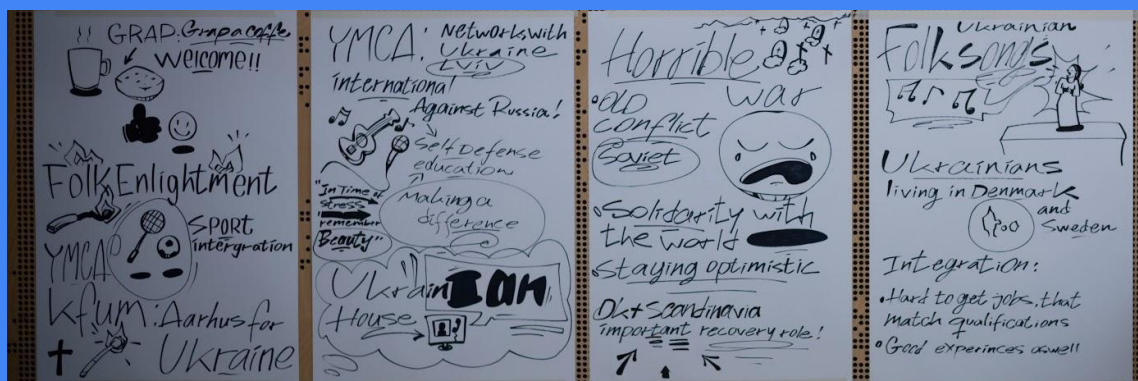 GRAP: Grap a coffe
Welcome!!
Folk Enlightment
Sport
intergration
YMCA
Kfum: Aarhus for
Ukraine
YMCA: Networks with
Ukraine
Lviv
international
Against Russia!
Self Defense
education
Making a
difference
"In Time of
stress
remember
Beauty"
Ukrainian
House
Horrible
war
OLD
conflict
Soviet
Solidarity with
the world
Staying optimistic
Dk + Scandinavia
important recovery role!
Ukrainian
Folksongs
Ukrainians
living in Denmark
and
Sweden
Integration:
Hard to get jobs, that
match qualifications
+
Good experinces aswell